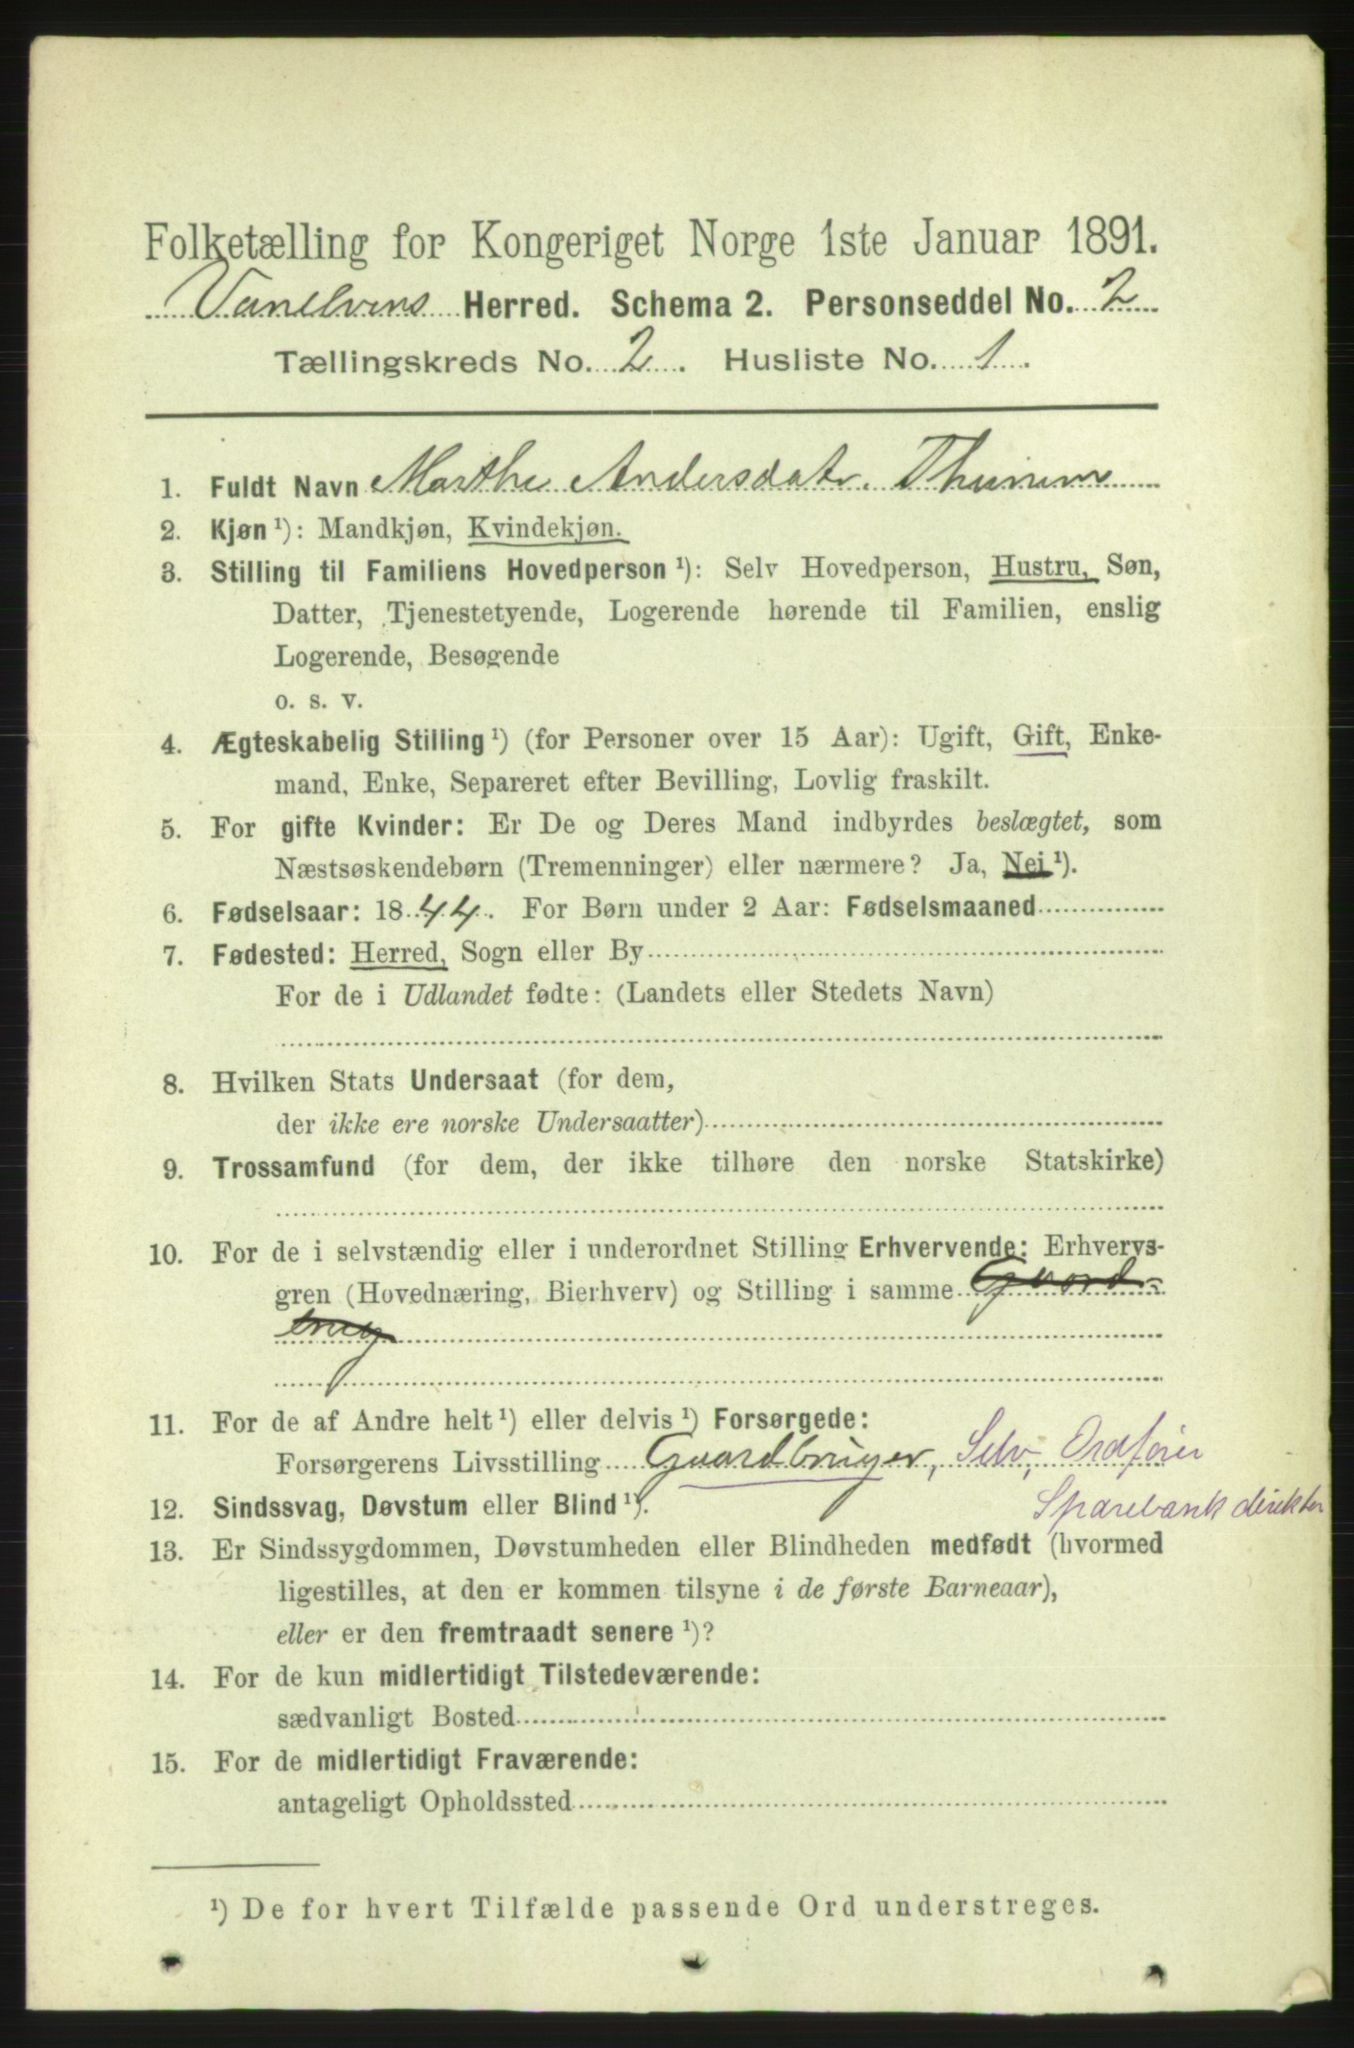 Folketælling for Kongeriget Norge 1ste Januar 1891.
Vanelvens Herred. Schema 2. Personseddel No. 2
Tællingskreds No. 2. Husliste No. 1.
1. Fuldt Navn Marthe Andersdatr.
2. Kjøn ¹): Mandkjøn, Kvindekjøn.
3. Stilling til Familiens Hovedperson ¹): Selv Hovedperson, Hustru, Søn,
Datter, Tjenestetyende, Logerende hørende til Familien, enslig
Logerende, Besøgende
o. s. v.
4. Ægteskabelig Stilling ¹) (for Personer over 15 Aar): Ugift, Gift, Enke-
mand, Enke, Separeret efter Bevilling, Lovlig fraskilt.
5. For gifte Kvinder: Er De og Deres Mand indbyrdes beslægtet, som
Næstsøskendebørn (Tremenninger) eller nærmere? Ja, Nei ¹).
6. Fødselsaar: 1844. For Børn under 2 Aar: Fødselsmaaned
7. Fødested: Herred, Sogn eller By
For de i Udlandet fødte: (Landets eller Stedets Navn)
8. Hvilken Stats Undersaat (for dem,
der ikke ere norske Undersaatter)
9. Trossamfund (for dem, der ikke tilhøre den norske Statskirke)
10. For de i selvstændig eller i underordnet Stilling Erhvervende: Erhvervs-
gren (Hovednæring, Bierhverv) og Stilling i samme Gaard-
brug
11. For de af Andre helt ¹) eller delvis ¹) Forsørgede:
Forsørgerens Livsstilling Gaardbruger, Selv, Ordfører
Sparebank direktør
12. Sindssvag, Døvstum eller Blind ¹).
13. Er Sindssygdommen, Døvstumheden eller Blindheden medfødt (hvormed
ligestilles, at den er kommen tilsyne i de første Barneaar),
eller er den fremtraadt senere ¹)?
14. For de kun midlertidigt Tilstedeværende:
sædvanligt Bosted
15. For de midlertidigt Fraværende:
antageligt Opholdssted
¹) De for hvert Tilfælde passende Ord understreges.